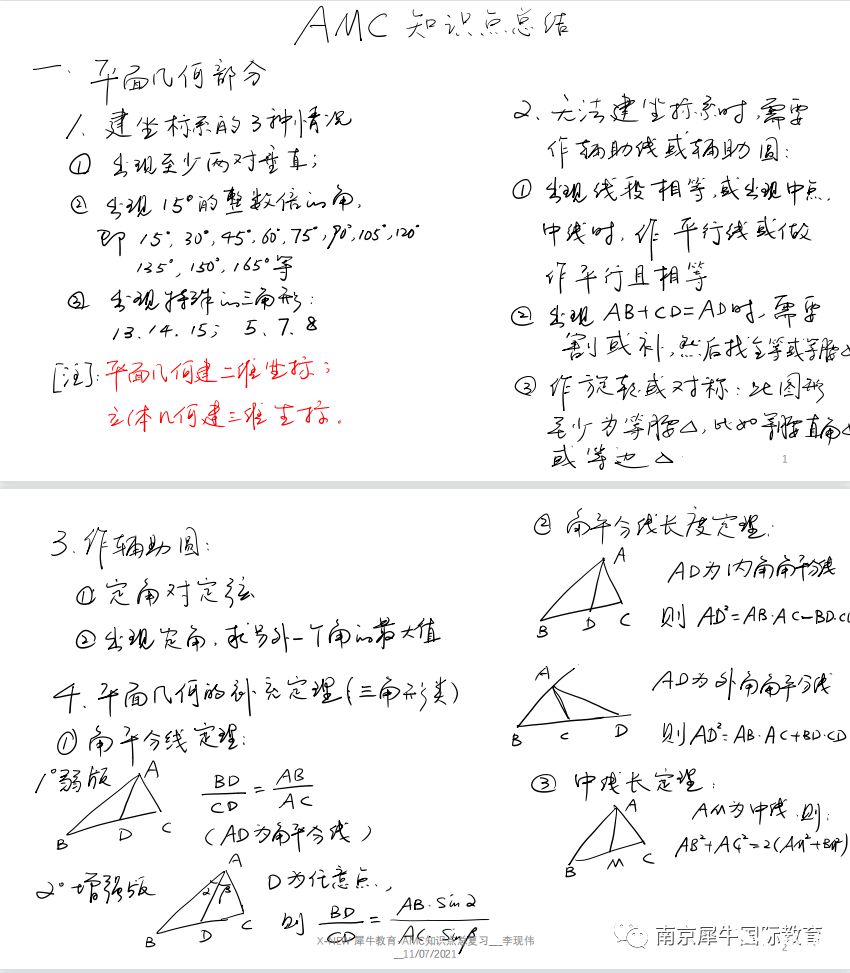 AMC 知识点总结
一. 平面几何部分
1. 建坐标系的3种情况
① 出现至少两对垂直;
② 出现15°的整数倍的角,
即 15°, 30°, 45°, 60°, 75°, 90°, 105°, 120°
135°, 150°, 165° 等
③ 出现特殊的三角形:
13. 14. 15; 5. 7. 8
[注]: 平面几何建二维坐标;
立体几何建三维坐标.
2. 无法建坐标系时, 需要
作辅助线或辅助圆:
① 出现线段相等, 或出现中点,
中线时, 作平行线或做
作平行且相等
② 出现 AB+CD=AD时, 需要
割或补, 然后找全等或等腰△
③ 作旋转或对称: 此图形
至少为等腰△, 比如等腰直角△
或等边△
1
3. 作辅助圆:
① 定角对定弦
② 出现定角, 求另外一个角的最大值
4. 平面几何的补充定理(三角形类)
① 角平分线定理:
1° 弱版
A
B D C
BD/CD = AB/AC
(AD为角平分线)
2° 增强版
A
α β
B D C
D为任意点,
则 BD/CD = AB·sinα/AC·sinβ
② 角平分线长度定理:
A
B D C
AD为内角角平分线
则 AD²=AB·AC-BD·CD
A
B C D
AD为外角角平分线
则AD²=AB·AC+BD·CD
③ 中线长定理:
A
B M C
AM为中线, 则:
AB²+AC²=2(AM²+BM²)
X-NEW 犀牛教育-AMC知识点总复习__李现伟
__11/07/2021
南京犀牛国际教育
2